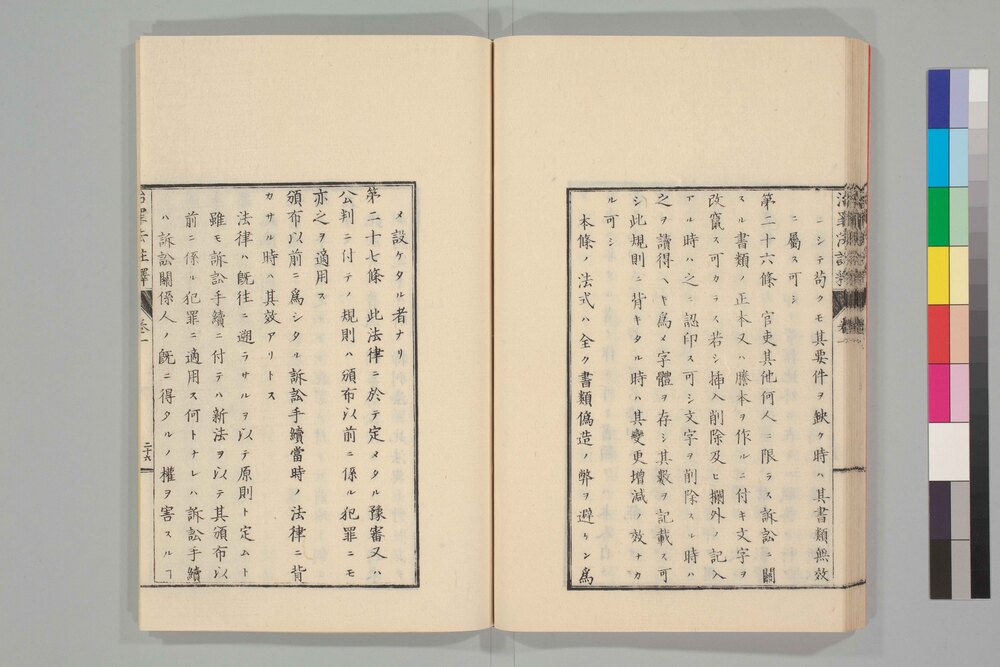 ニシテ苟クモ其要件ヲ缺ク時ハ其書類無效
ニ屬ス可シ
第二十六條 官吏其他何人ニ限ラス訴訟ニ關
スル書類ノ正本又ハ謄本ヲ作ルニ付キ文字ヲ
改竄ス可カラス若シ挿入削除及ヒ欄外ノ記入
アル時ハ之ニ認印ス可シ文字ヲ削除スル時ハ
之ヲ讀得ヘキ爲メ字體ヲ存シ其數ヲ記載ス可
シ此規則ニ背キタル時ハ其變更增減ノ效ナカ
ル可シ
本條ノ法式ハ全ク書類僞造ノ弊ヲ避ケン爲
メ設ケタル者ナリ
第二十七條 此法律ニ於テ定メタル豫審又ハ
公判ニ付テノ規則ハ頒布以前ニ係ル犯罪ニモ
亦之ヲ適用ス
頒布以前ニ爲シタル訴訟手續當時ノ法律ニ背
カサル時ハ其效アリトス
法律ハ旣往ニ遡ラサルヲ以テ原則ト定ムト
雖モ訴訟手續ニ付テハ新法ヲ以テ其頒布以
前ニ係ル犯罪ニ適用ス何トナレハ訴訟手續
ハ訴訟關係人ノ旣ニ得タルノ權ヲ害スルヿ
治罪法註釋
卷一
二十六